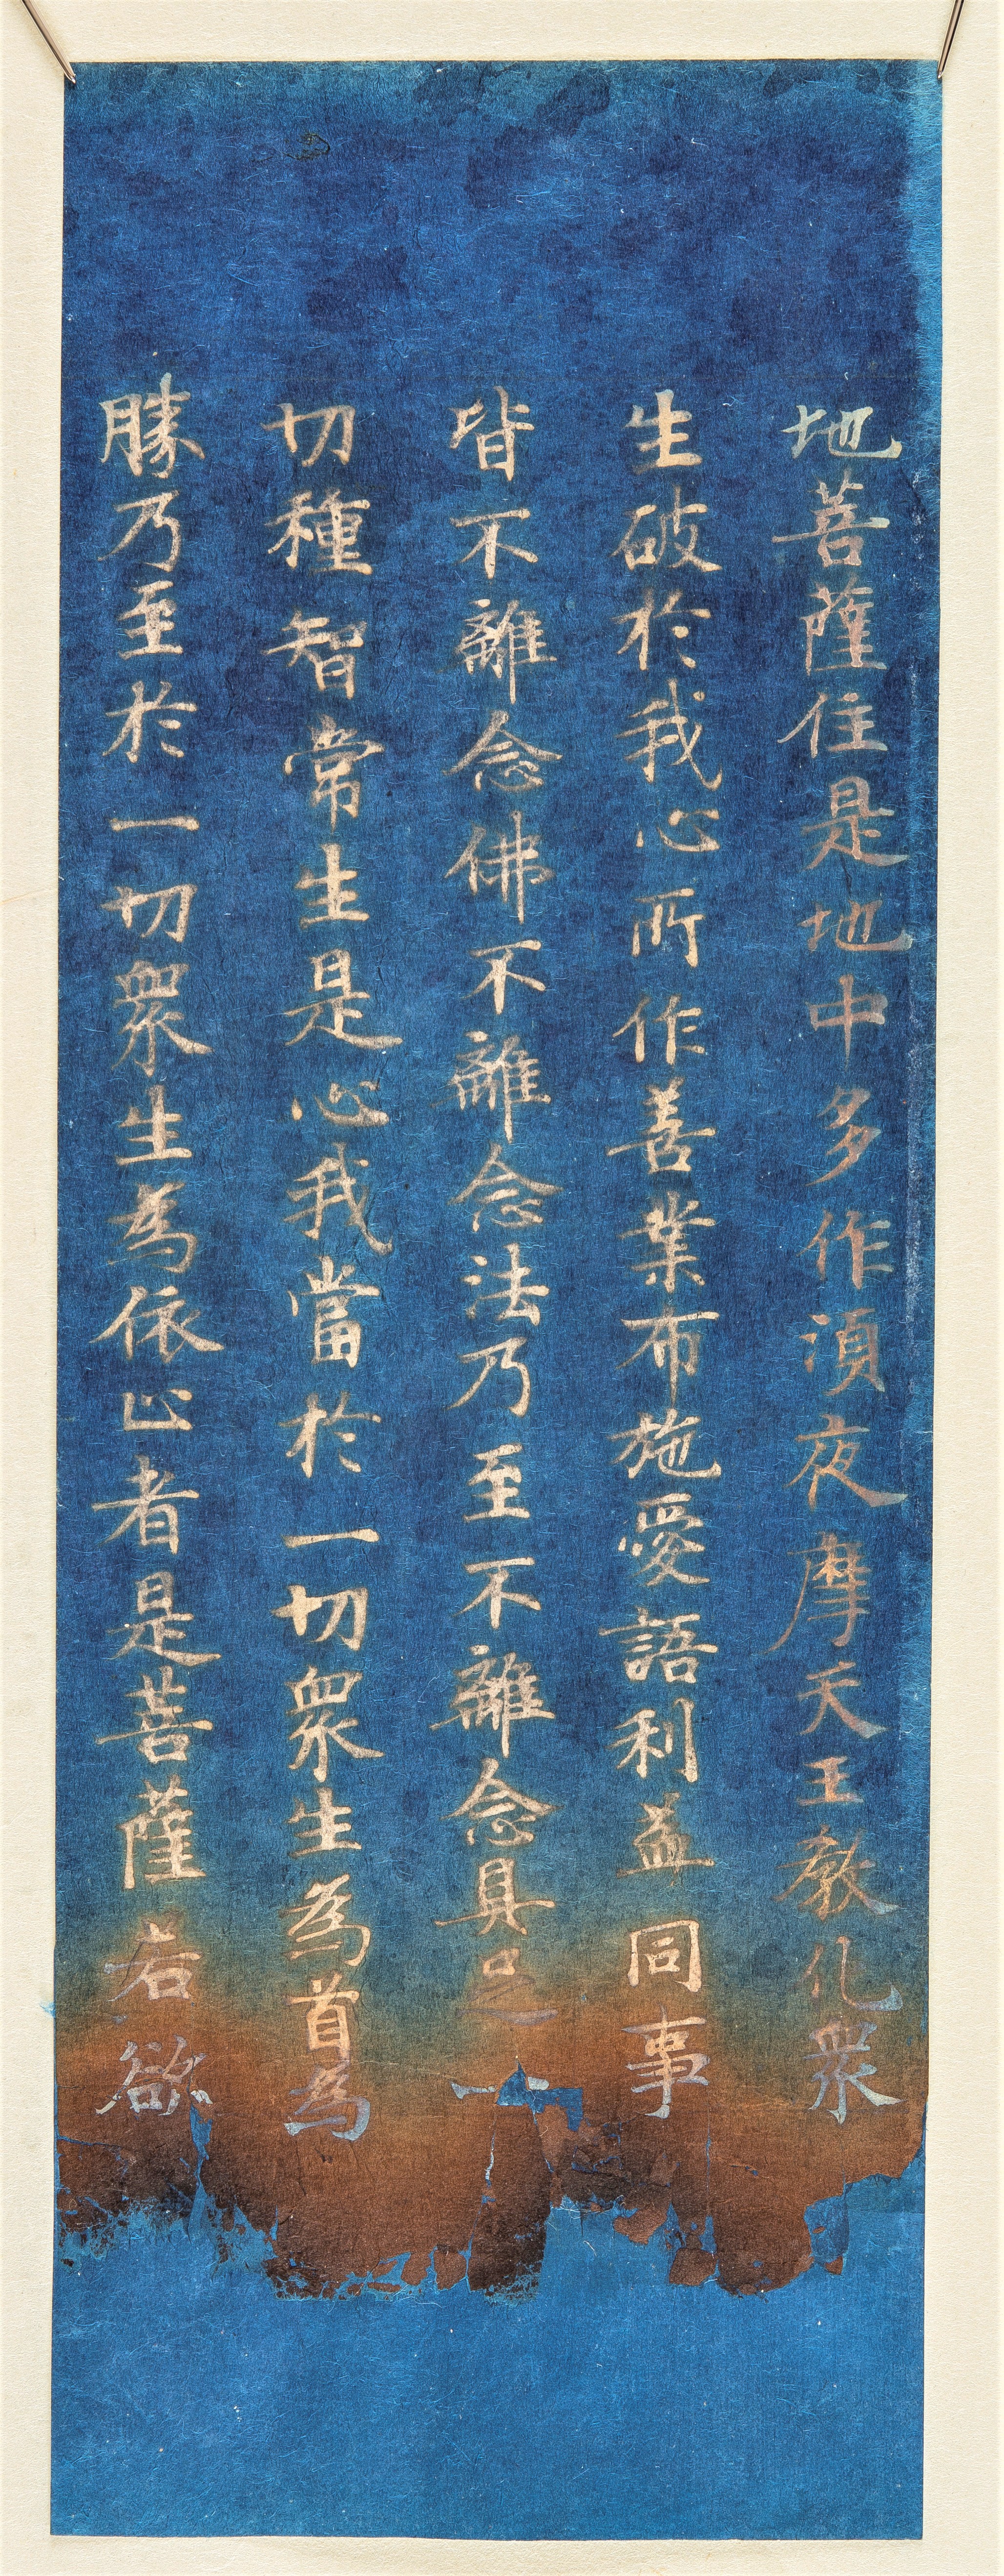 地菩薩住是地中多作湏夜摩天王教化衆
生破於我心所作善業布施愛語利益同事
皆不離念佛不離念法乃至不離念具足一
切種智常生是心我當於一切衆生為首為
勝乃至於一切衆生為依止者是菩薩若欲